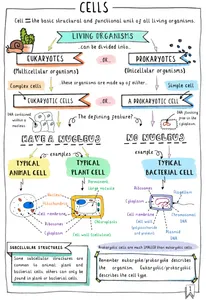 CELLS
Cell = the basic structural and functional unit of all living organisms.
LIVING ORGANISMS
...can be divided into...
EUKARYOTES OR PROKARYOTES
(Multicellular organisms) (Unicellular organisms)
Complex cells these organisms are made up of either.. Simple cell
EUKARYOTIC CELLS OR A PROKARYOTIC CELL
DNA contained
within a
nucleus
The defining feature!
DNA floating
free in the
cytoplasm
HAVE A NUCLEUS NO NUCLEUS
examples example
TYPICAL
ANIMAL CELL
TYPICAL
PLANT CELL
TYPICAL
BACTERIAL CELL
Nucleus
Mitochondria
Cell membrane
Ribosomes
Cytoplasm
Chloroplasts
Cell wall (cellulose)
Ribosomes
Cytoplasm
Cell membrane
Cell wall
Flagellum
Chromosomal
DNA
Plasmid
DNA
SUBCELLULAR STRUCTURES
Some subcellular structures
are common to animal, plant and
bacterial cells, others can only be
found in plant or bacterial cells.
Prokaryotic cells are much SMALLER than eukaryotic cells.
Remember: eukaryote/prokaryote describes
the organism. Eukaryotic/prokaryotic
describes the cell type.